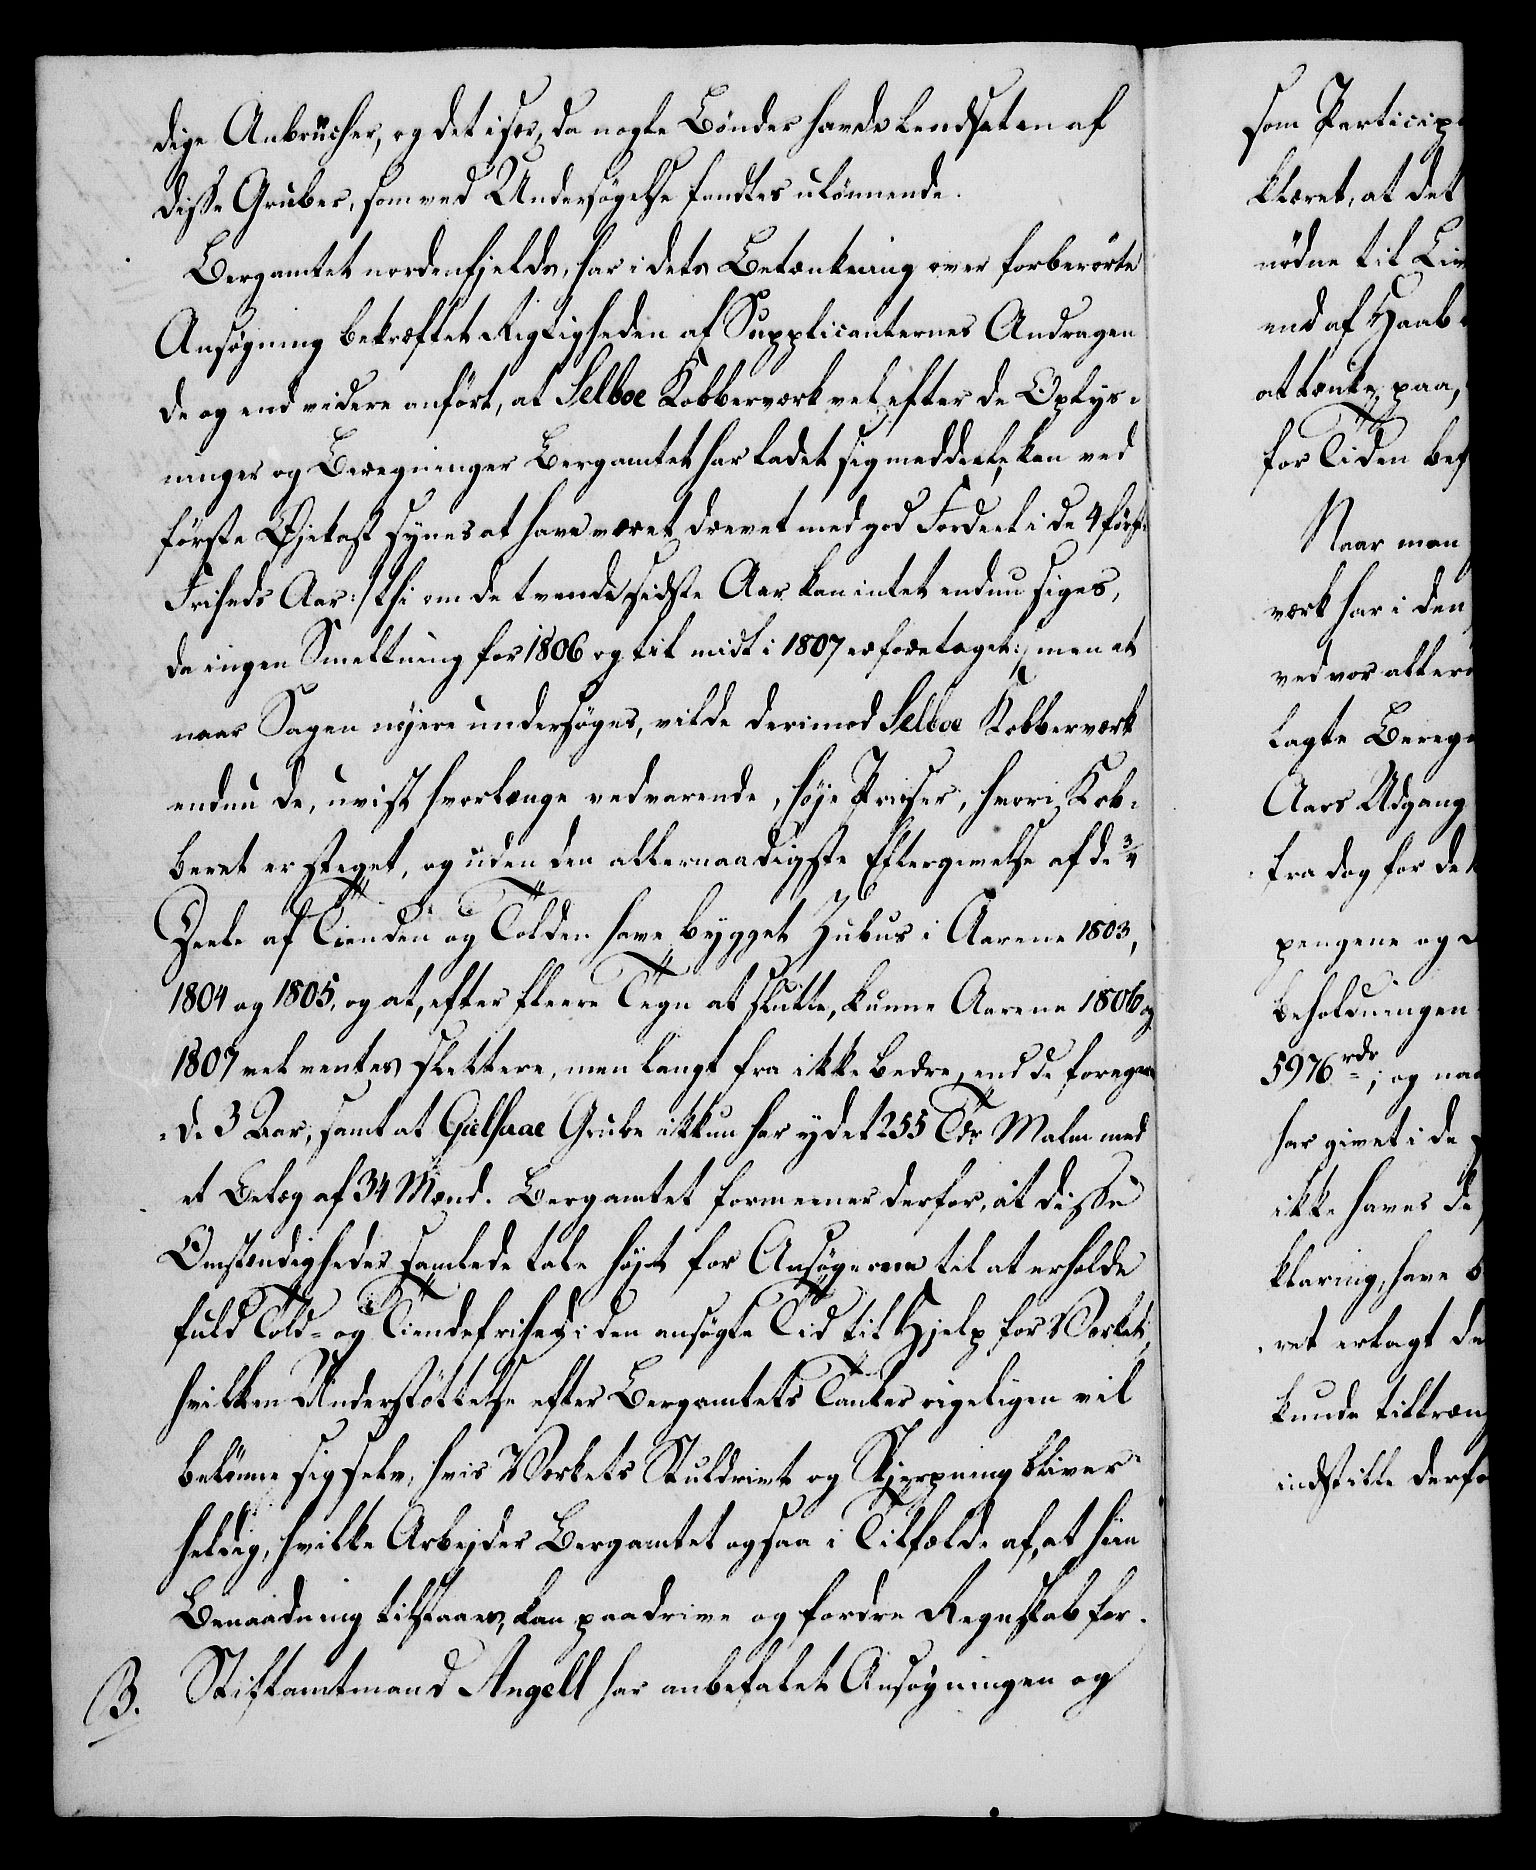 dige Anbrücher, og det især, da nogle Bönder havde kendskaten af
disse Gruber, som ved Undersögelse fandtes ulönnende.
Bergamtet nordenfjelds, har i dets Betænkning over forberörte
Ansögning bekræftet Rigtigheden af Supplicanternes Andragen
de og end videre anfört, at Selboe Kobberværk vel efter de Oplys-
ninger og Beregninger Bergamtet har ladet sig meddeele, kan ved
förste Öjekast synes at have været drevet med god Fordeel i de 4 först
Friheds Aar :/ thi om de tvende sidste Aar kan intet endnu siges,
da ingen Smeltning for 1806 og til midt i 1807 er foretaget :/ men at
naar Sagen nöjere undersöges, vilde derimod Selboe Kobberværk
endnu de, uvist hvorlænge vedvarende, höje Priser, hvori Kob-
beret er steget, og uden den allernaadigste Eftergivelse af de 3/4
Deele af Tienden og Tolden have bygget Zubus i Aarene 1803,
1804 og 1805, og at, efter fleere Tegn at slutte, kunne Aarene 1806 og
1807 vel ventes slettere, men langt fra ikke bedre, end de foregaaen
-de 3 Aar, samt at Gülsaae Grube ikkun har ydet 255 Tdr Malm med
et Belæg af 34 Mænd. Bergamtet formeener derfor, at disse
Omstændigheder samlede tale höjt for Ansögerne til at erholde
fuld Told- og Tiendefrihed i den ansögte Tid til Hjelp for Værket,
hvilken Understöttelse efter Bergamtets Tanker rigeligen vil
belönne sig selv, hvis Værkets Stuldrivt og Skjerpning bliver
heldig, hvilke Arbejder Bergamtet ogsaa i Tilfælde af, at hiin
Benaadning tilstaaes, kan paadrive og fordre Regnskab for.
B. Stiftamtmand Angell har anbefalet Ansögningen og
som Particip
klæret, at det
nödne til Liv
end af Haab
at tænke paa,
for Tiden bef
Naar man
værk har i den
ved vor aller
lagte Bereg
Aars Udgang
fra dog for det
pengene og
beholdningen
5976 rdr; og naa
har givet i de
ikke haves de
klaring, have b
ret erlagt de
kunde tiltræn
indstille derfo